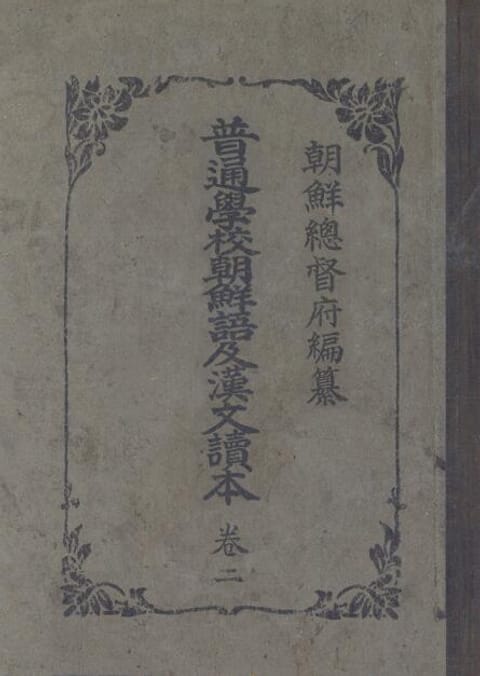 朝鮮總督府編纂
普通學校朝鮮語及漢文讀本 卷二